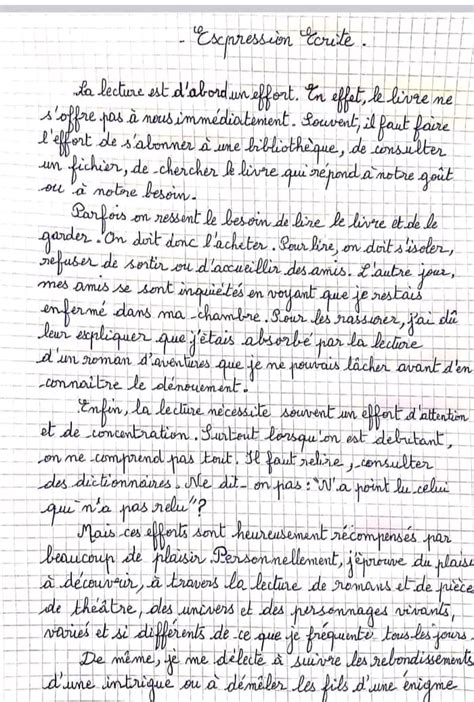 - Expression Ecrite.
La lecture est d'abord un effort. En effet, le livre ne
s'offre pas à nous immédiatement. Souvent, il faut faire
l'effort de s'abonner à une bibliothèque, de consulter
un fichier, de chercher le livre qui répond à notre goût
ou à notre besoin.
Parfois on ressent le besoin de lire le livre et de le
garder. On doit donc l'acheter. Pour lire, on doit s'isoler,
refuser de sortir ou d'accueillir des amis. L'autre jour,
mes amis se sont inquiétés en voyant que je restais
enfermé dans ma chambre. Pour les rassurer, j'ai dû
leur expliquer que j'étais absorbé par la lecture
d'un roman d'aventures que je ne pouvais lâcher avant d'en
connaitre le dénouement.
Enfin, la lecture nécessite souvent un effort d'attention
et de concentration. Surtout lorsqu'on est debutant,
on ne comprend pas tout. Il faut relire, consulter
des dictionnaires. Ne dit-on pas : "N'a point lu celui
qui n'a pas relu" ?
Mais ces efforts sont heureusement récompensés par
beaucoup de plaisir. Personnellement, j'éprouve du plaisi
à découvrir, à travers la lecture de romans et de pièce
de théâtre, des univers et des personnages vivants,
variés et si différents de ce que je fréquente tous les jours.
De même, je me délecte à suivre les rebondissements
d'une intrigue ou à démêler les fils d'une énigme